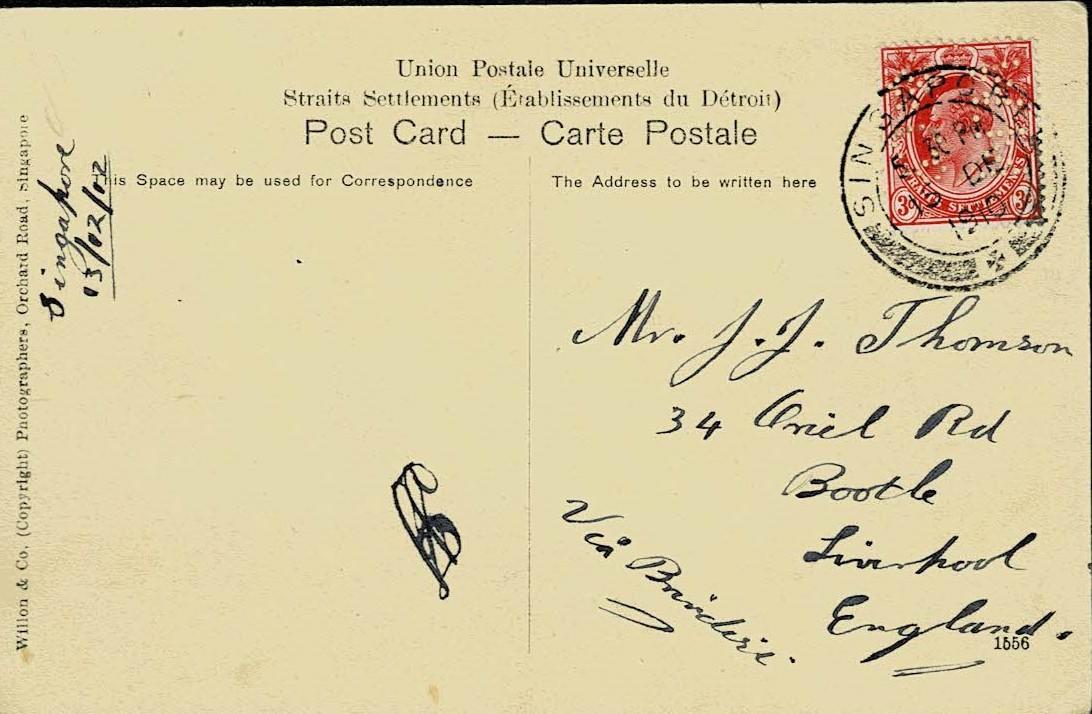 Union Postale Universelle
Straits Settlements (Établissements du Détroit)
Post Card — Carte Postale
This Space may be used for Correspondence
The Address to be written here
Willon & Co. (Copyright) Photographers, Orchard Road, Singapore
Singapore
SINGAPORE
PM
DE
1910
STRAITS SETTLEMENTS
3c 3c
Mr. J. J. Thomson
34 Oriel Rd
Bootle
Liverpool
England.
Via Brindisi.
1556